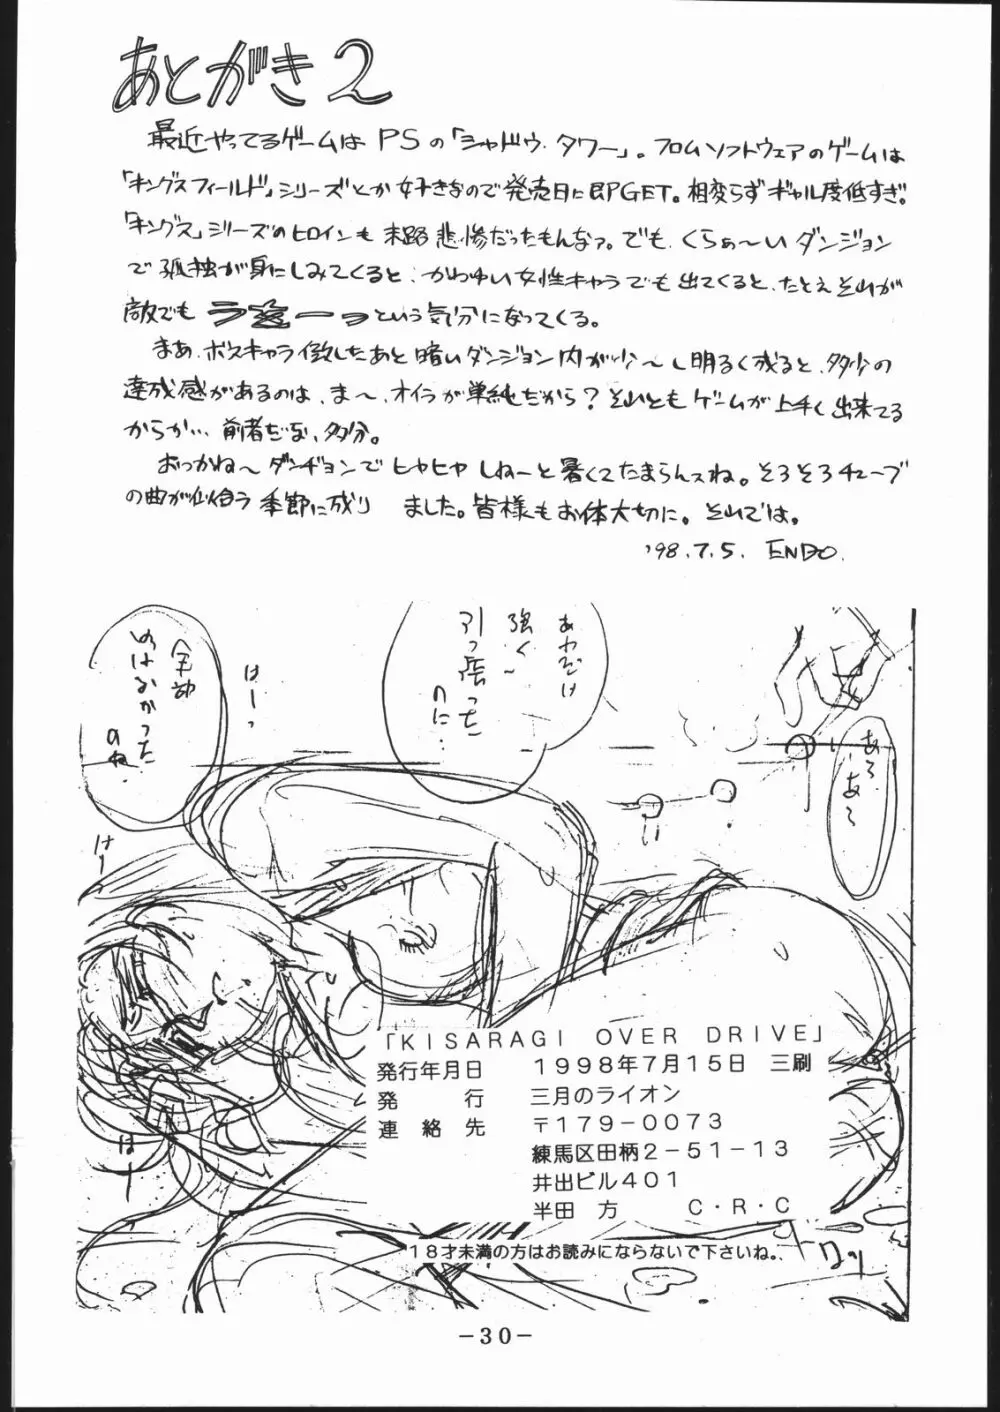 あとがき2
最近やってるゲームはPSの「シャドウ・タワー」。フロムソフトウェアのゲームは
「キングスフィールド」シリーズとか好きなので発売日に即GET。相変らずギャル度低すぎ。
「キングス」シリーズのヒロインも末路悲惨だったもんなァ。でも、くらぁ〜いダンジョン
で孤独が身にしみてくると、かわゆい女性キャラでも出てくると、たとえそれが
敵でも という気分になってくる。
まあ、ボスキャラ倒したあと暗いダンジョン内が少〜し明るく成ると、多少の
達成感があるのは、ま〜、オイラが単純だから？それともゲームが上手く出来てる
からか…前者だな、多分。
おっかね〜ダンヂョンでヒヤヒヤしねーと暑くてたまらんスね。そろそろチューブ
の曲が似合う季節に成りました。皆様もお体大切に。それでは。
'98.7.5. ENDO.
あれだけ
強く〜
引っ張った
のに…
はーっ
全部
ぬけなかった
のね…
はーっ
あら
あら
はーっ
「KISARAGI OVER DRIVE」
発行年月日 1998年7月15日 三刷
発 行 三月のライオン
連絡先 〒179-0073
練馬区田柄2-51-13
井出ビル401
半田 方 C・R・C
18才未満の方はお読みにならないで下さいね。
-30-